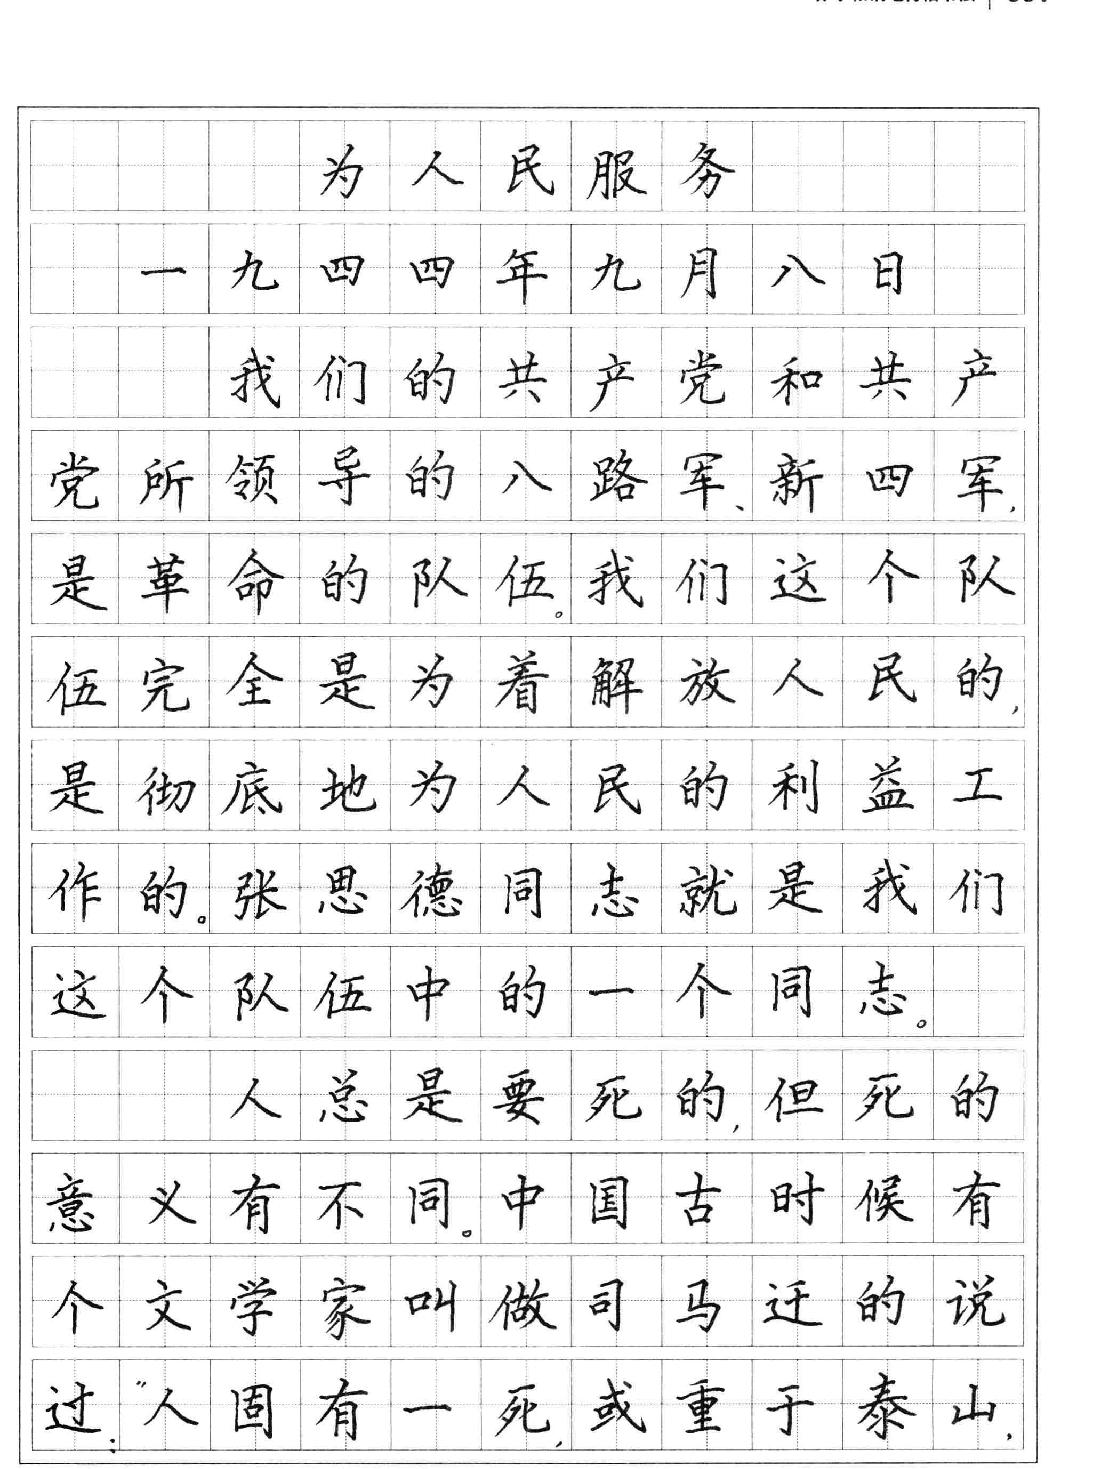 为人民服务
一九四四年九月八日
我们的共产党和共产
党所领导的八路军、新四军,
是革命的队伍。我们这个队
伍完全是为着解放人民的,
是彻底地为人民的利益工
作的。张思德同志就是我们
这个队伍中的一个同志。
人总是要死的,但死的
意义有不同。中国古时候有
个文学家叫做司马迁的说
过:“人固有一死,或重于泰山,